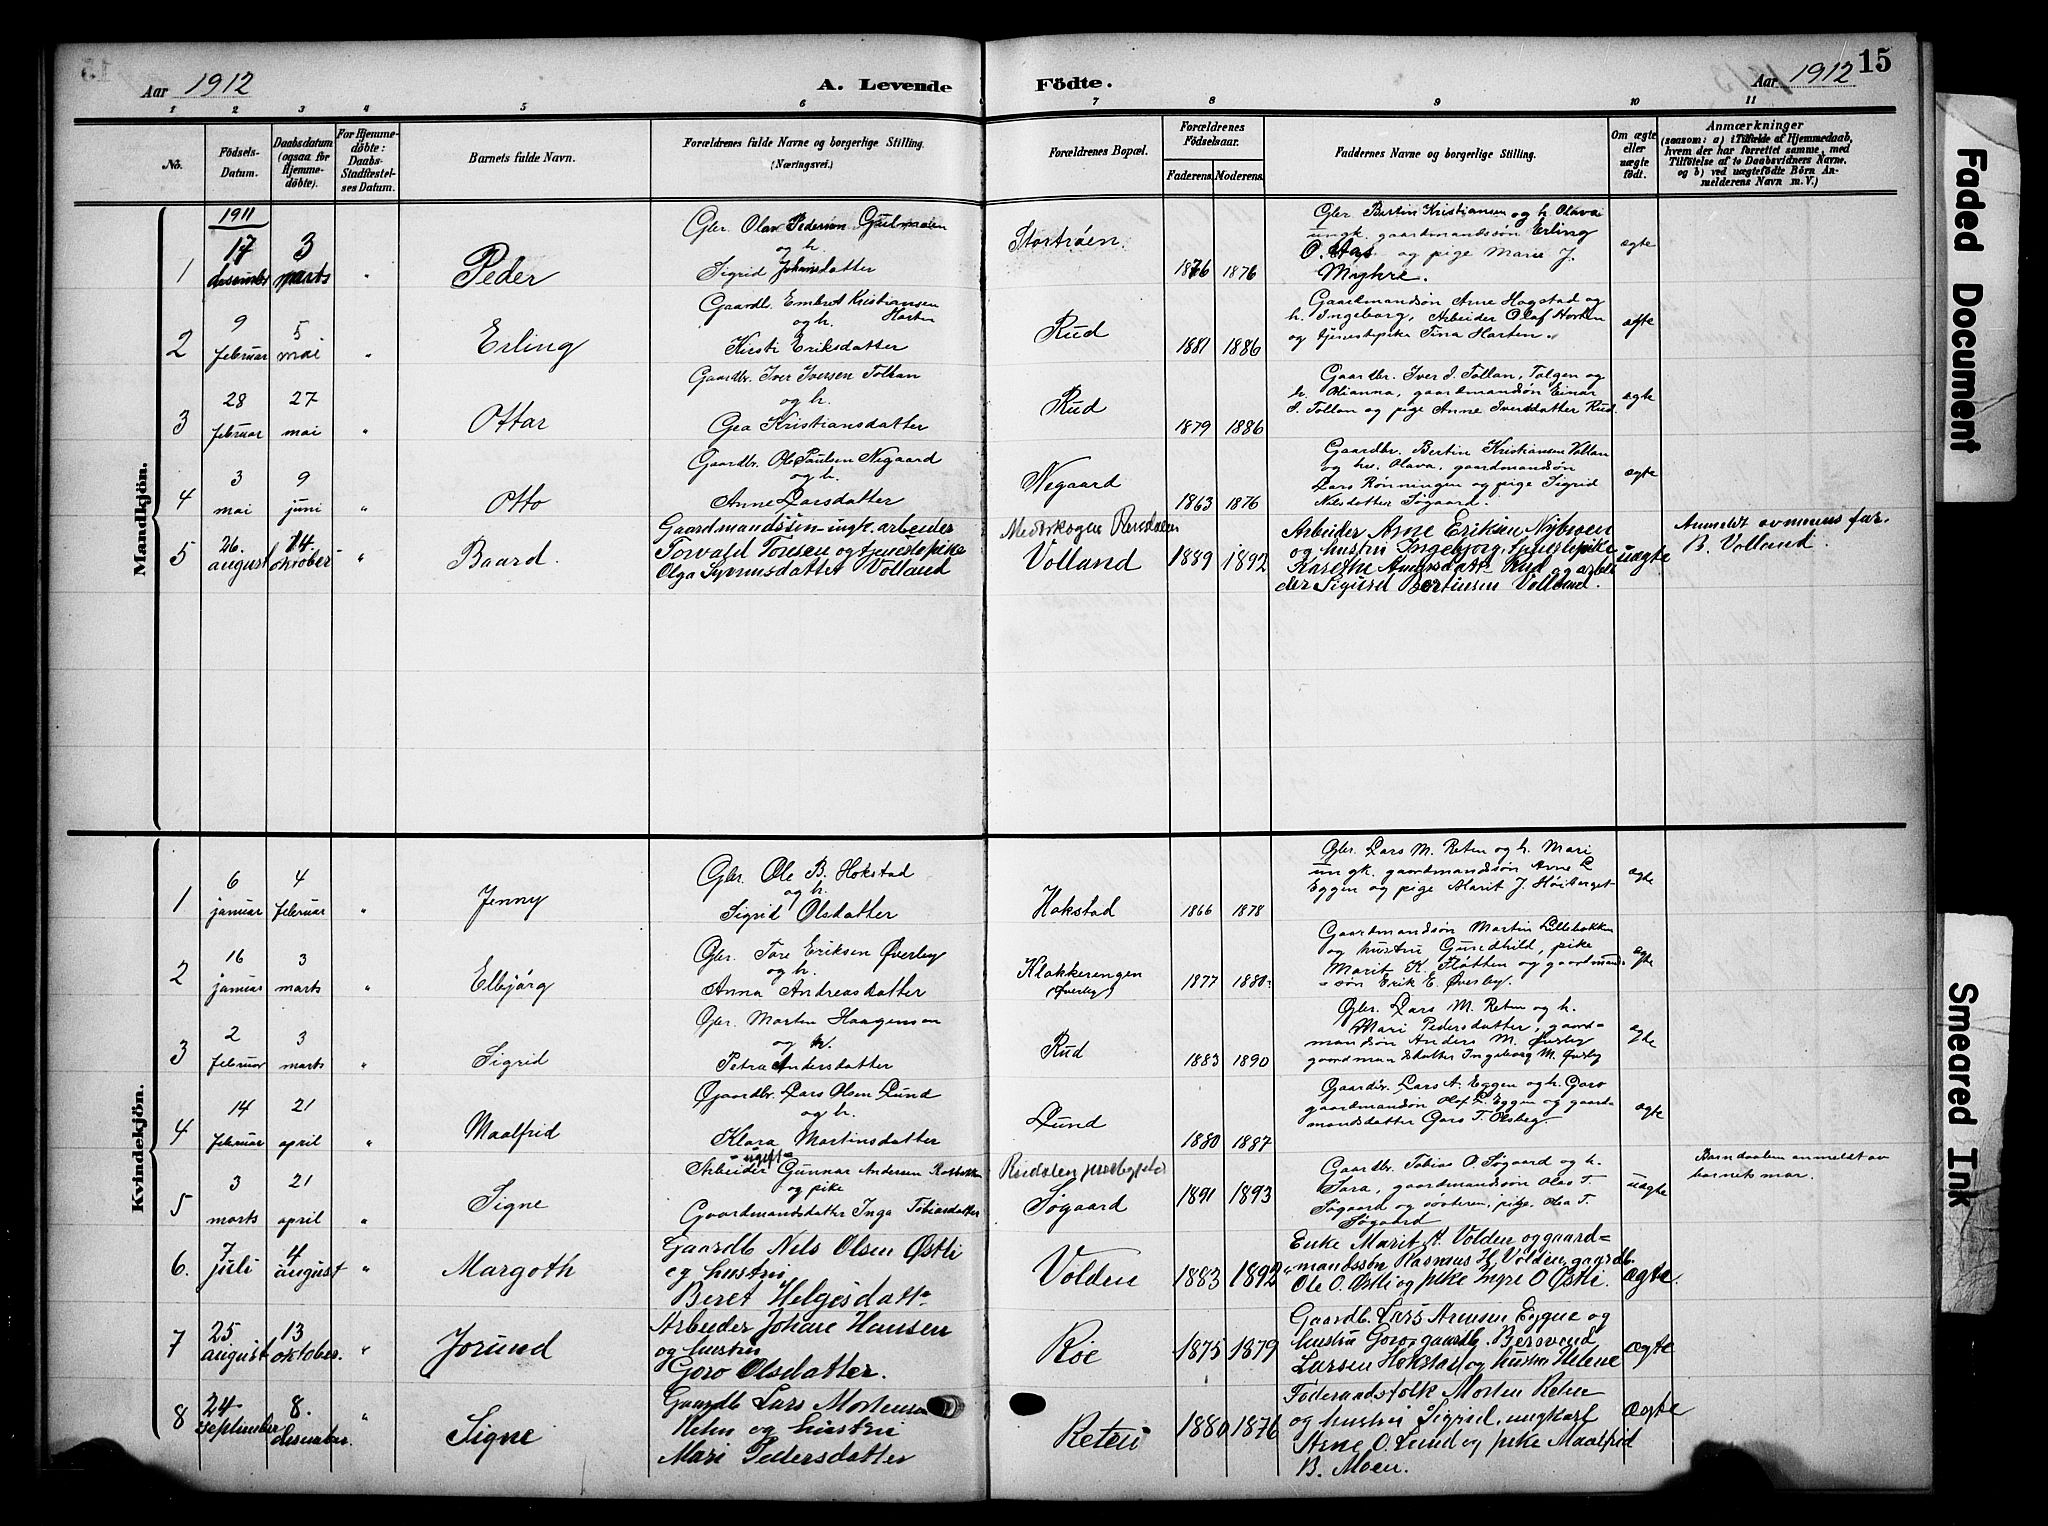 15
Aar 1912
A. Levende Födte.
Aar 1912
1 2 3 4 5 6 7 8 9 10 11
No.
Födsels-Datum.
Daabsdatum (ogsaa for Hjemme-döbte).
For Hjemme-döbte: Daabs-Stadfæstelses Datum.
Barnets fulde Navn.
Forældrenes fulde Navne og borgerlige Stilling. (Næringsvei.)
Forældrenes Bopæl.
Forældrenes Födselsaar.
Faderens. Moderens.
Faddernes Navne og borgerlige Stilling.
Om ægte eller uægte födt.
Anmærkninger
(saasom: a) i Tilfælde af Hjemmedaab, hvem der har forrettet samme, med Tilföielse af to Daabsvidners Navne, og b) ved uægtefödte Börn Anmelderens Navn m. V.)
Mandkjön.
1911
1 17 desember 3 marts " Peder
Gbr. Olav Pedersen
og h.
Sigrid Johnsdatter
Stortrøen. 1876 1876
Gbr. Bertin Kristiansen og h. Olava
ungk. gaardmandssøn Erling
O. Aas og pige Marie J.
Myhre.
ægte
2 9 februar 5 mai " Erling
Gaardb. Embret Kristiansen
og h. Horten
Kirsti Eriksdatter
Rud 1881 1886
Gaardmandsøn Arne Hogstad og
h. Ingeborg, Arbeider Olaf Horten
og tjenestepike Tina Horten.
ægte
3 28 februar 27 mai " Ottar
Gaardbr. Iver Iversen Tollan
og h.
Gea Kristiansdatter
Rud 1879 1886
Gaardbr. Iver I. Tollan, Tolgen og
h. Olianna, gaardmandsøn Einar
I. Tollan og pige Anne Iversdatter Rud.
ægte
4 3 mai 9 juni " Otto
Gaardbr. Ole Paulsen Negaard
og h.
Anne Larsdatter
Negaard 1863 1876
Gaardbr. Bertin Kristiansen Vollan
og hu. Olava, gaardmandsøn
Lars Rønningen og pige Sigrid
Nilsdatter Søgaard.
ægte
5 26. august 14 oktober " Baard.
Gaardmandssøn ungk. arbeider
Torvald Toresen og tjenestepike
Olga Syverinsdatter Volland
Volland 1889 1892
Arbeider Arne Eriksen Nybroen
og hustru Ingebjørg, tjenestepike
Rud og arbei
der Sigurd Bertinsen Volland.
uægte
Anmeldt av morens far
B. Volland.
Kvindekjön.
1 6 januar 4 februar " Jenny
Gbr. Ole B. Hokstad
og h.
Sigrid Olsdatter
Hokstad 1866 1878
Gbr. Lars M. Reten og h. Mari
ungk. gaardmandsøn Arne L
Eggen og pige Marit J. Høiberget
ægte
2 16 januar 3 marts " Elbjørg
Gbr. Tore Eriksen Øverby
og h.
Anna Andreasdatter
Klokkerengen
(Øverby) 1877 1880
Gaardmandsøn Martin Lillebakken
og hustru Gundhild, pike
Marit K. Fløtten og gaardmand-
søn Erik E. Øverby.
ægte
3 2 februar 3 marts " Sigrid
Gbr. Martin Haagensen
og h.
Petra Andersdatter
Rud 1883 1890
Gbr. Lars M. Reten og h.
Mari Pedersdatter, gaard=
mandsøn Anders M. Øverby
gaardmandsdatter Ingeborg M. Øverby
ægte
4 14 februar 21 april " Maalfrid
Gaardbr. Lars Olsen Lund
og h.
Klara Martinsdatter
Lund 1880 1887
Gaardbr. Lars A. Eggen og h. Goro
gaardmandsøn Olof L. Eggen og gaard-
mandsdatter Goro T. Olsbeg.
ægte
5 3 marts 21 april " Signe
ugift
Arbeider Gunnar Andersen
og pike
Gaardmandsdatter Inga Tobiasdatter
Søgaard 1891 1893
Gaardbr. Tobias O. Søgaard og h.
Sara, gaardmandsøn Olas T.
Søgaard og søsteren, pige, Olea T.
Søgaard
uægte
Barndaaben anmeldt av
barnets mor.
6. 7 juli 4 august " Margoth
Gaardb Nils Olsen Østli
og hustru
Beret Helgesdatter
Volden 1883 1892
Enke Marit A. Volden og gaard=
mandssøn Rasmus H. Volden, gaardb.
Ole O. Østli og pike Ingre O Østli.
ægte.
7 25 august 13 oktober. " Jorund
Arbeider Johan Hansen
og hustru
Goro Olsdatter.
Roe 1875 1879
Gaardb. Lars Arnesen Eggne og
hustru Goro, gaardb. Bersvend
Larsen Hokstad og hustru Helene
ægte
8 24 september 8. desember. " Signe
Gaardb Lars Mortensen
Reten og hustru
Mari Pedersdatter
Reten 1880 1876
Føderaadsfolk Morten Reten
og hustru Sigrid, ungkarl
Arne O. Lund og pike Maalfrid
B. Moen.
Ægte
Faded Document
Smeared Ink